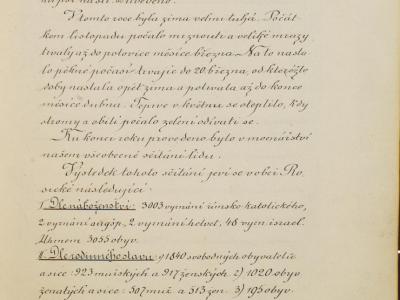 V tomto roce byla zima velmi tuhá. Počát
kem listopadu počalo mrznouti a veliké mrazy
trvaly až do polovice měsíce března. Na to nasta-
lo pěkné počasí trvajíc do 20. března, od kteréžto
doby nastala opět zima a potrvala až do konce
měsíce dubna. Teprve v květnu se oteplilo, kdy
stromy a obilí počalo zelení odívati se.
Ku konci roku provedeno bylo v mocnářství
našem všeobecné sčítání lidu.
Výsledek tohoto sčítání jeví se v obci Ro
sické následující
1. Dle náboženství: 3003 vyznání římsko katolického,
2 vyznání augsp., 2 vyznání helvet, 48 vyzn. israel.
Úhrnem 3055 obyv.
II. Dle rodinného stavu: 1) 1840 svobodných obyvatelů
a sice: 923 mužských a 917 ženských. 2) 1020 obyv
ženatých a sice: 507 muž. a 513 žen. 3) 195 obyv